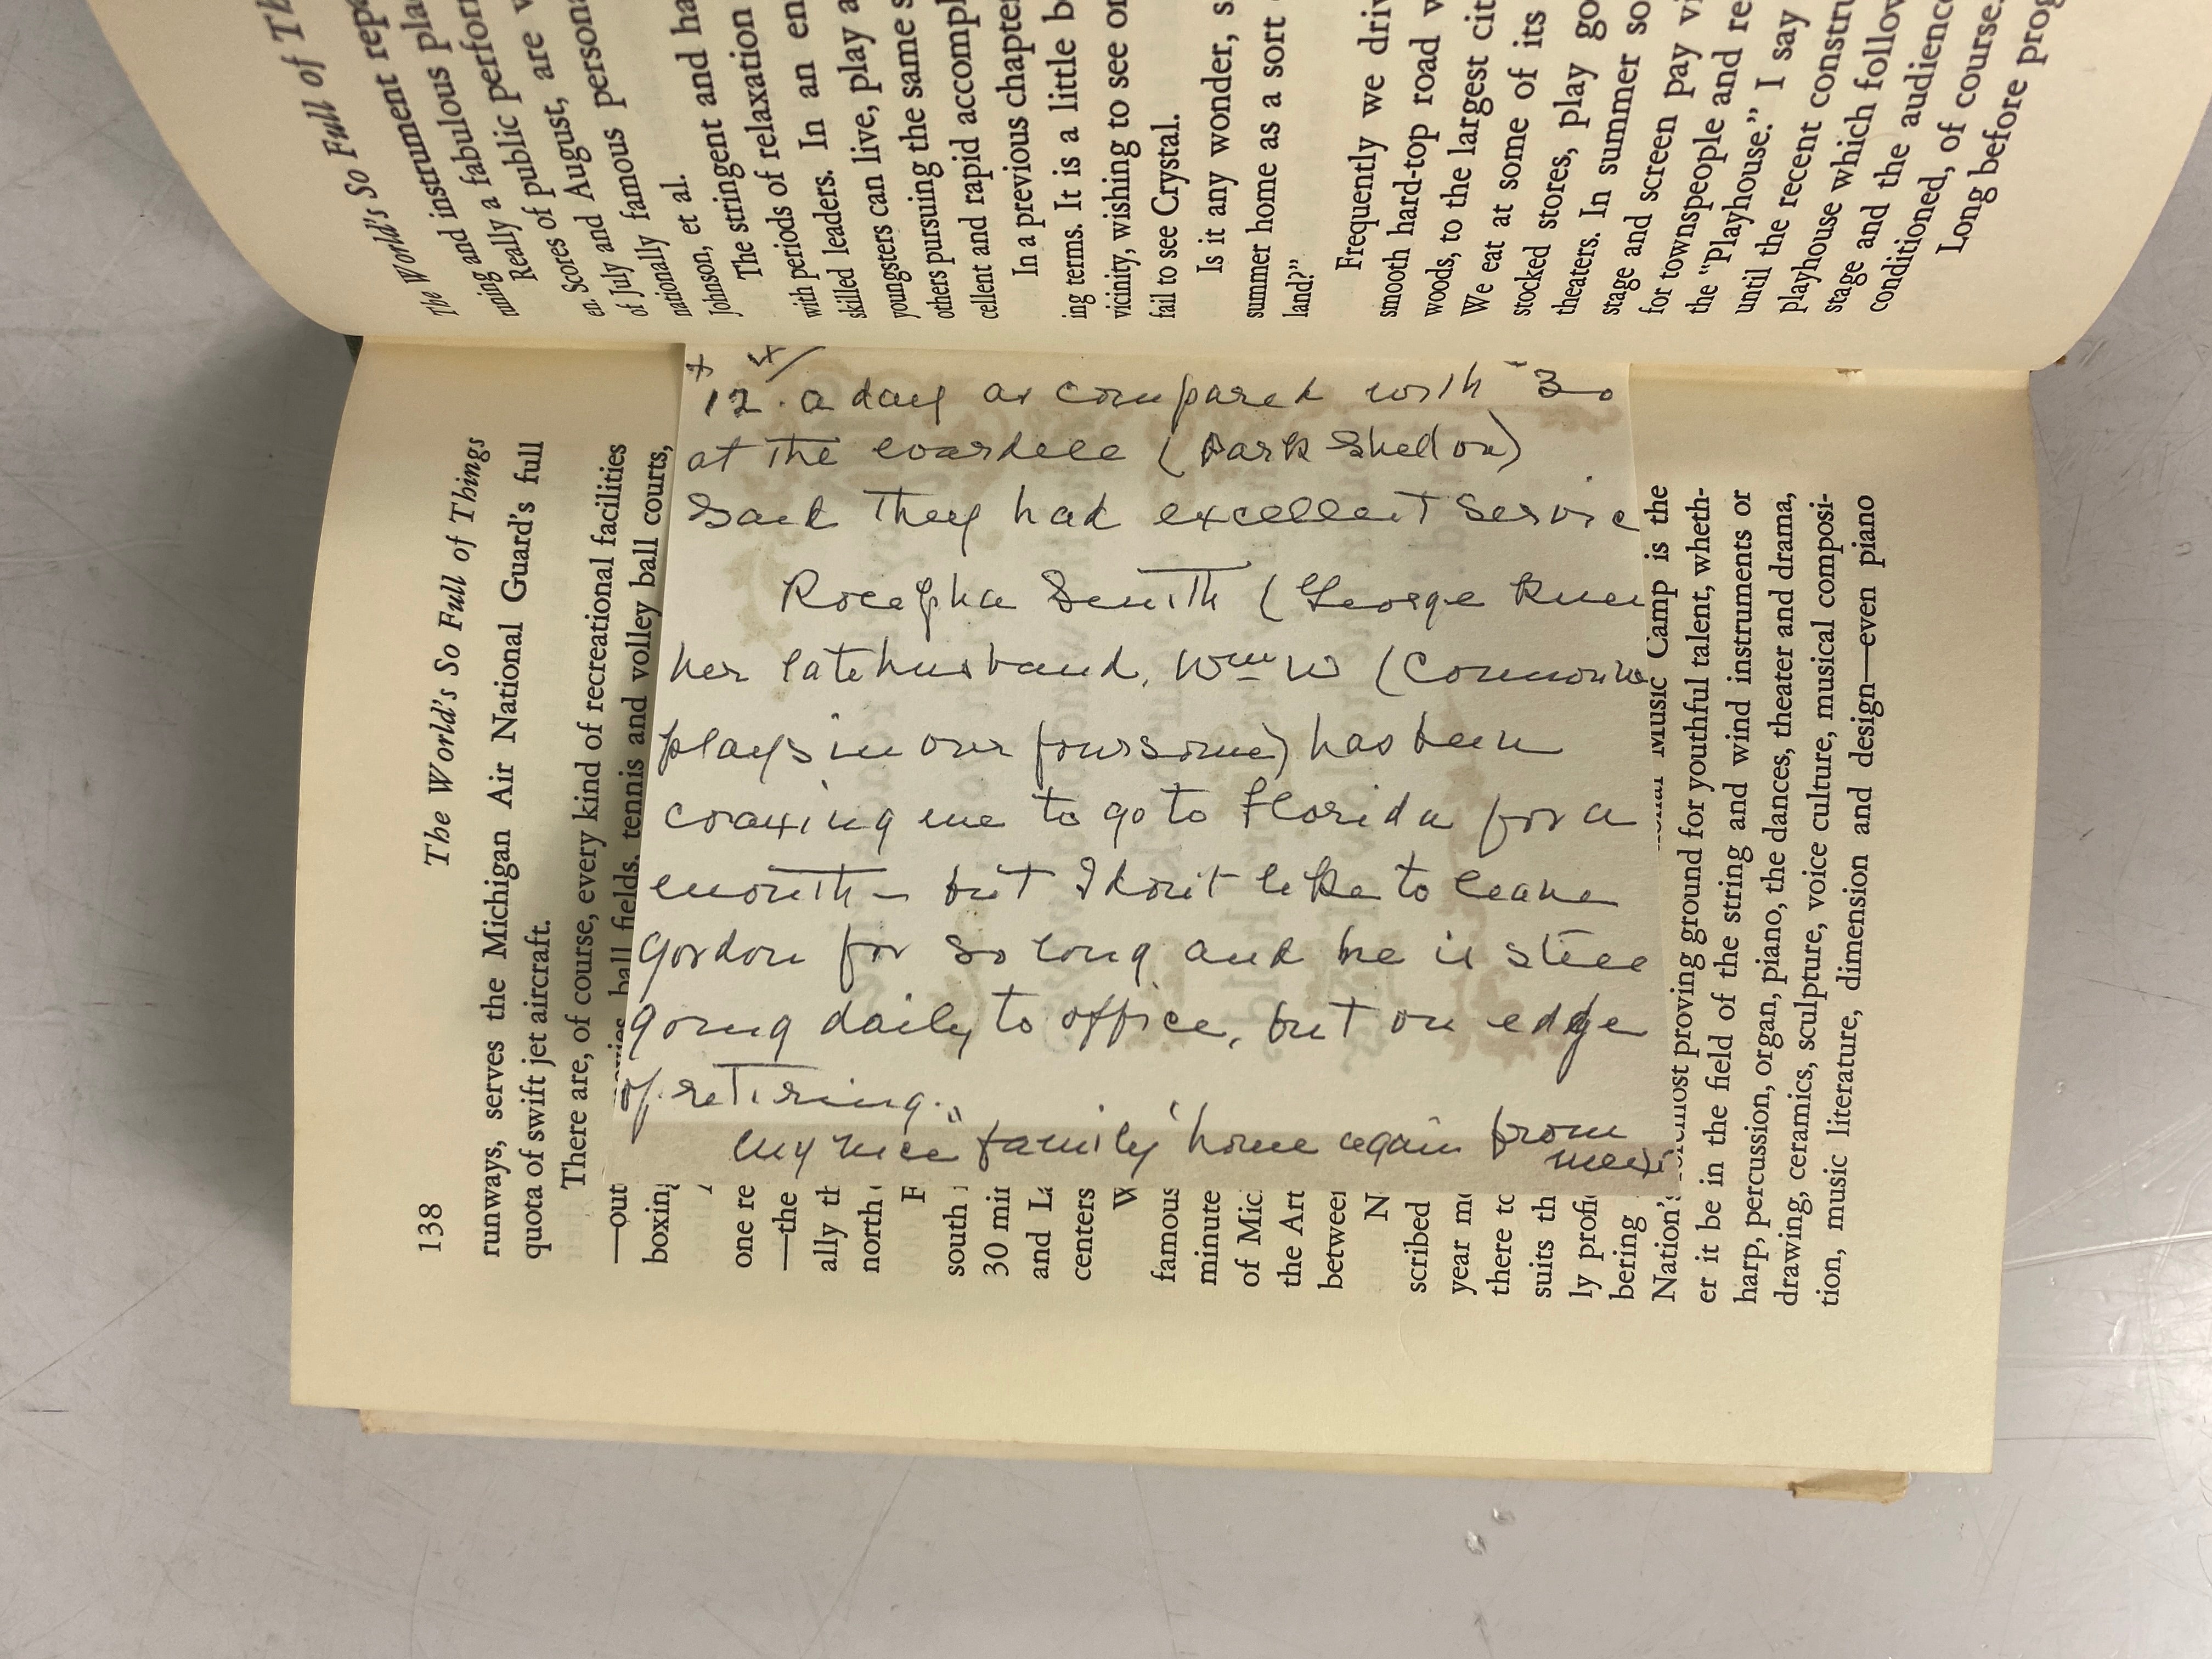 12. a day as compared with 30
at the Wardell (Park Shelton)
Said They had excellent Servic
Smith (George
her late husband, Wm W (Commonw
plays in our foursome) has been
coaxing me to go to Florida for a
month – but I don't like to leave
Gordon for so long and he is still
going daily to office, but on edge
of retiring.
My nice "family" home again from
Mexi
138 The World's So Full of Things
runways, serves the Michigan Air National Guard's full
quota of swift jet aircraft.
There are, of course, every kind of recreational facilities
—out movies, ball fields, tennis and volley ball courts,
boxing
one re
—the
ally th
north
F
south
30 mi
and La
centers
W
famous
minute
of Mic
the Art
between
N
scribed
year m
there to
suits th
ly profi
bering
Nation's foremost proving ground for youthful talent, wheth-
Music Camp is the
er it be in the field of the string and wind instruments or
harp, percussion, organ, piano, the dances, theater and drama,
drawing, ceramics, sculpture, voice culture, musical composi-
tion, music literature, dimension and design—even piano
The World's So Full of Th
The World's So Full of Th
ment repe
ning and instrumental pla
ning a fabulous perform
Really a public
Scores of public, are w
en. Scores and August, persona
of July and famous
nationally famous
Johnson, et al.
The stringent and ha
with periods of relaxation
skilled leaders. In an en
youngsters can live, play a
others pursuing the same s
cellent and rapid accompl
In a previous chapter
ing terms. It is a little b
vicinity, wishing to see or
fail to see Crystal.
Is it any wonder, s
summer home as a sort
land?"
Frequently we driv
smooth hard-top road w
woods, to the largest cit
We eat at some of its
stocked stores, play go
theaters. In summer so
stage and screen pay vi
for townspeople and re
the "Playhouse." I say
until the recent constru
playhouse which follow
stage and the audience
conditioned, of course.
Long before prog